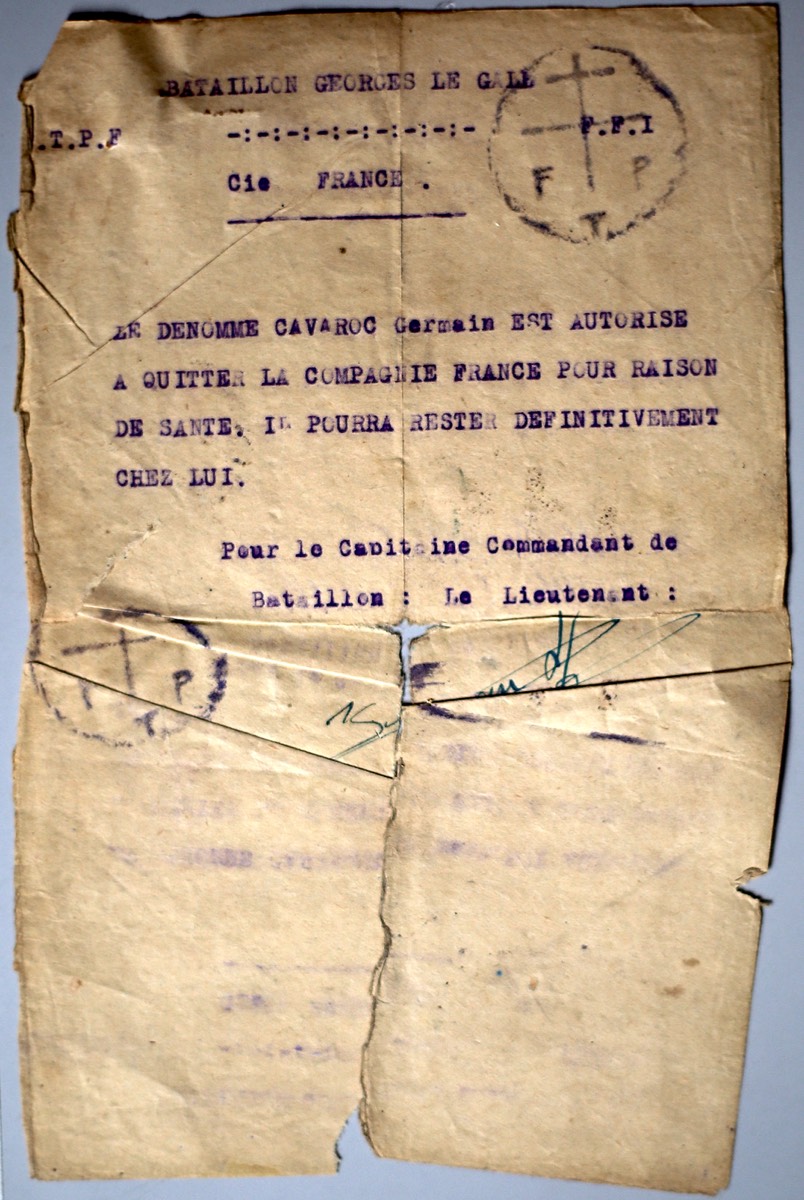 BATAILLON GEORGES LE GALL
.T.P.F -:-:-:-:-:-:-:-:- F.F.I
Cie FRANCE .
F T P
LE DENOMME CAVAROC Germain EST AUTORISE
A QUITTER LA COMPAGNIE FRANCE POUR RAISON
DE SANTE. IL POURRA RESTER DEFINITIVEMENT
CHEZ LUI.
Pour le Capitaine Commandant de
Bataillon : Le Lieutenant :
F T P